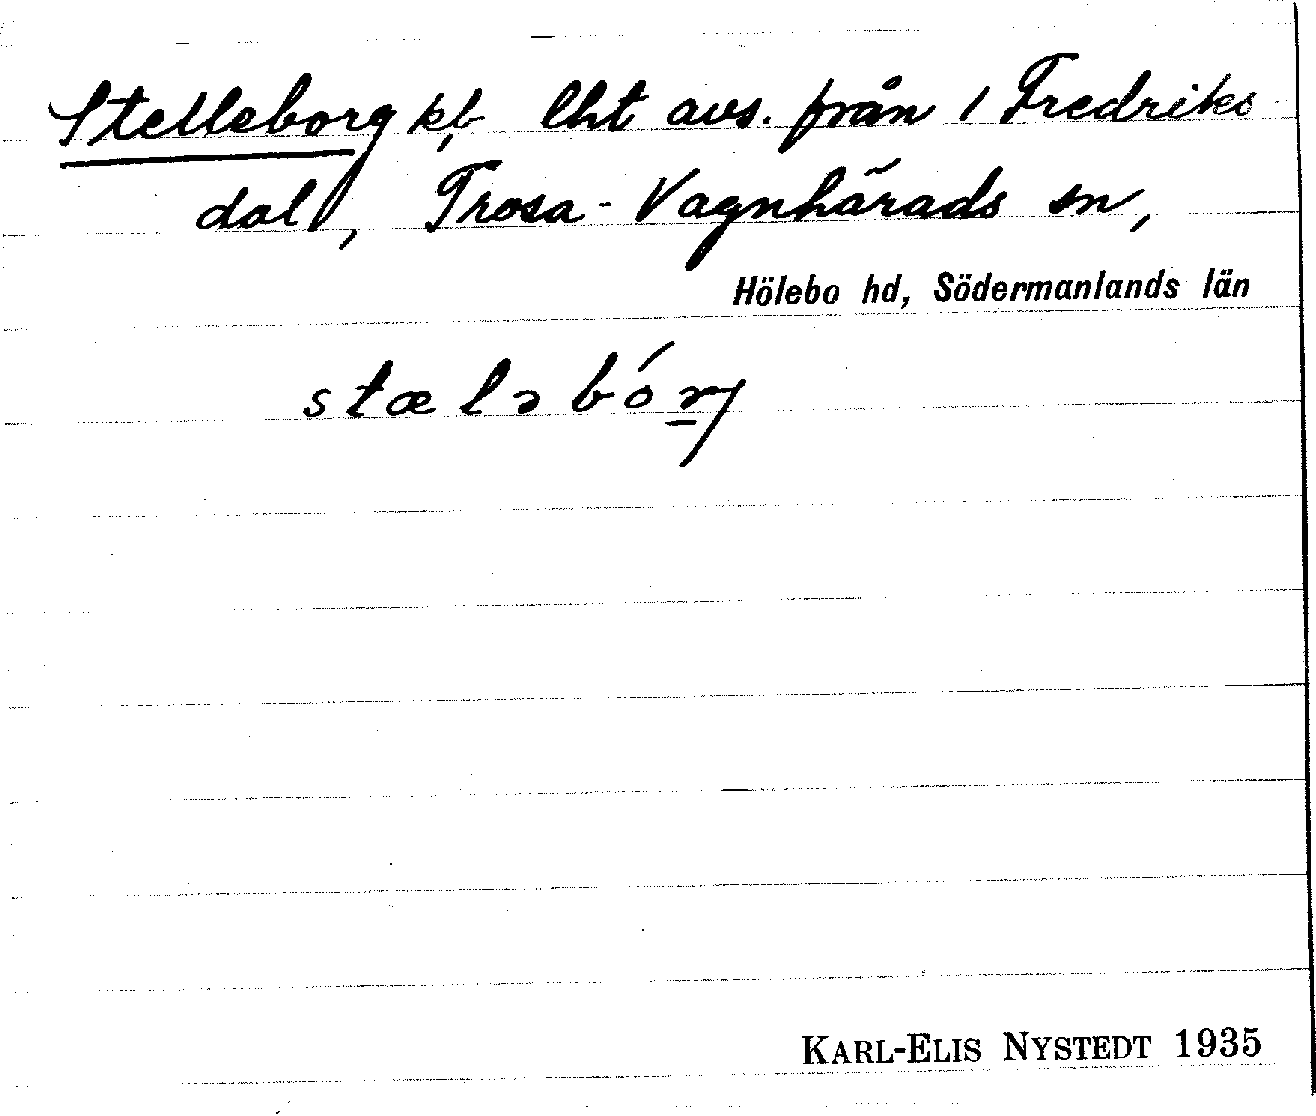 Stelleborg lht avs. från 1 Fredriks
dal, Trosa-Vagnhärads sn,
Hölebo hd, Södermanlands län
stæləbórj
KARL-ELIS NYSTEDT 1935